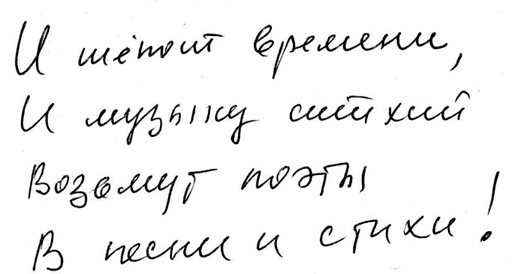 И шёпот времени,
И музыку стихий
Возьмут поэты
В песни и стихи!